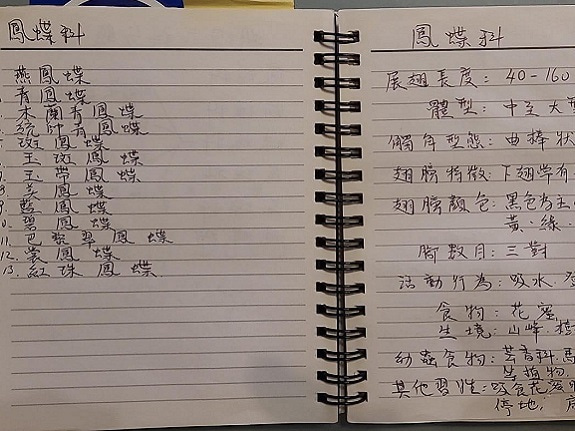 鳳蝶科
燕鳳蝶
青鳳蝶
木蘭青鳳蝶
統帥青鳳蝶
斑鳳蝶
玉斑鳳蝶
玉帶鳳蝶
美鳳蝶
藍鳳蝶
碧鳳蝶
11. 巴黎翠鳳蝶
12. 裳鳳蝶
13. 紅珠鳳蝶
鳳蝶科
展翅長度：40-160
體型：中至大型
觸角型態：曲棒狀
翅膀特徵：下翅常有
翅膀顏色：黑色為主
黃、綠、
腳數目：三對
活動行為：吸水、
食物：花蜜
生境：山峰、
幼蟲食物：芸香科、馬
等植物
其他習性：吸食花蜜
停地，